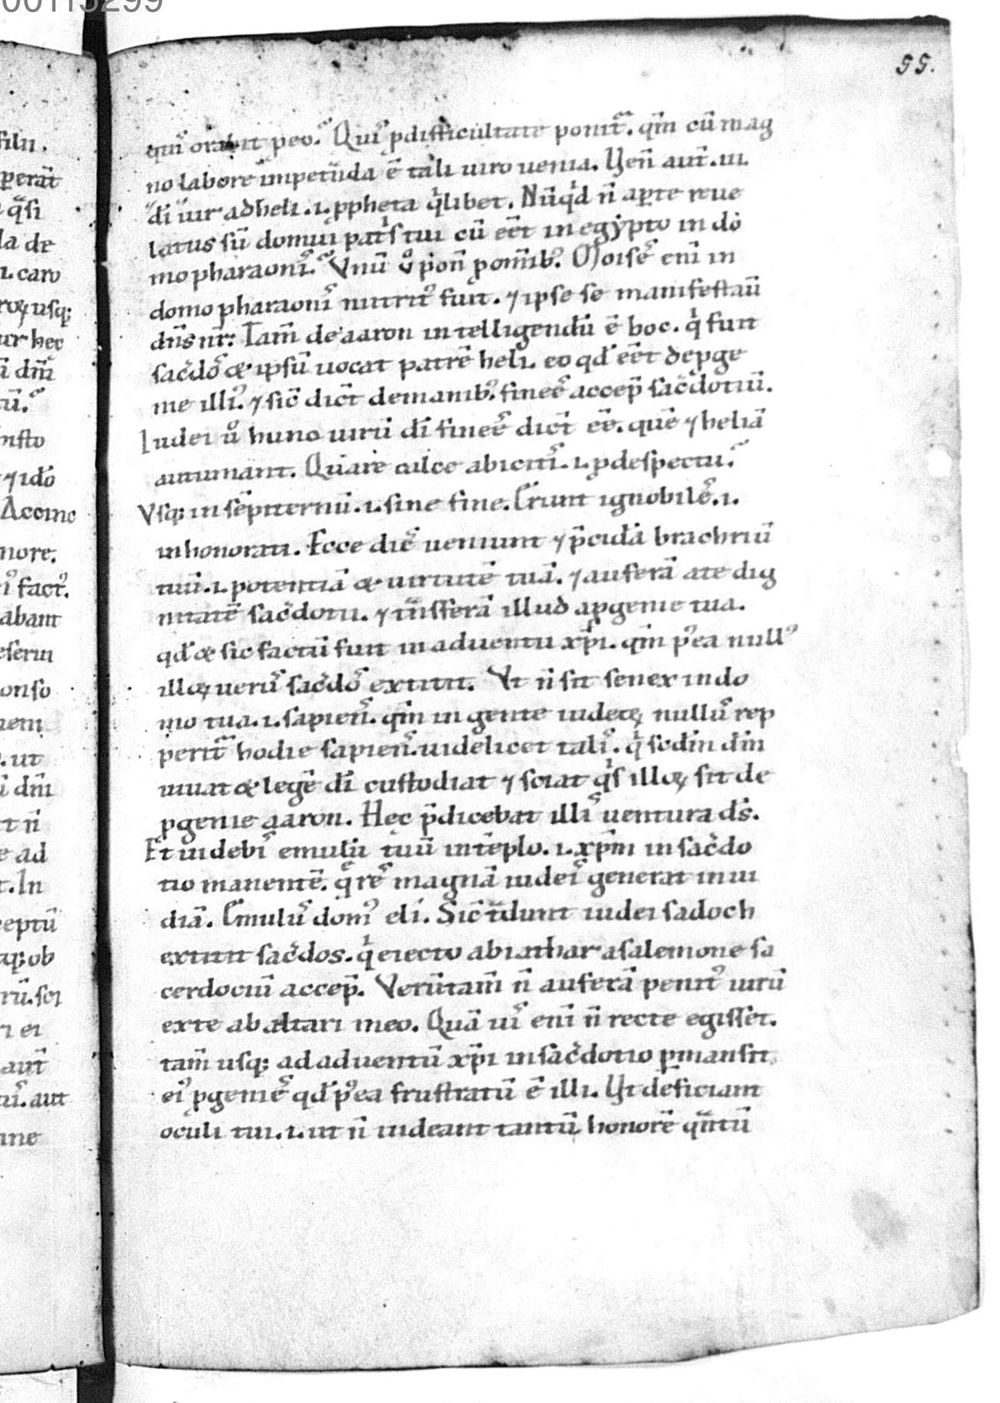 00113299
55.
filii.
perat̄
la de
.i. caro
ur hec
ı dm̄
Acomo
more.
abant
eserui
onso
.ut
dm̄
e ad
t. In
ceptū
ob
ri ei
aut̄
aut
quis orabit p eo. Quis p difficultate ponit̄. qm̄ cū mag
no labore impetrāda ē tali viro venia. Ven̄ aut̄ .vi.
di vir ad heli .i. ꝓpheta q̇libet. Nūqd n̄ aperte reve
latus sū domui pat̓s tui cū eēt in egypto in do
mo pharaonis. Unū ů pon̄ p omib᷒. Moises eni in
domo pharaonis nutrit᷒ fuit. ⁊ ipse se manifestavit
dn̄s nr̄. Tam̄ de aaron intelligendū ē hoc. q̇ fuit
sac̄dos ⁊ ipsū vocat patrē heli. eo qd eēt de ꝓge
nie illi᷒. ⁊ sic̄ dicit de manib᷒ finees accep̄ sac̄dotiū.
Iudei ů hunc virū di finees dict̄ eē. quē ⁊ heliā
autumant. Quare calce abicitis .i. p despectu.
Usq; in sēpiternū .i. sine fine. Erunt ignobiles .i.
inhonorati. Ecce dies veniunt ⁊ p̄cidā brachiū
tuū .i. potentiā ⁊ virtutē tuā. ⁊ auferā a te dig
nitatē sac̄dotii. ⁊ tn̄sferā illud a ꝓgenie tua.
qd ⁊ sic factū fuit in adventu xp̄i. qm̄ p᷒ea null᷒
illoꝝ verus sac̄dos extitit. Ut n̄ sit senex in do
mo tua .i. sapiens. qm̄ in gente iudeoꝝ nullus rep
perit̄ hodie sapiens. videlicet talis. q̇ scdm̄ dm̄
vivat ⁊ legē di custodiat ⁊ sciat q̇s illoꝝ sit de
ꝓgenie aaron. Hęc p̄dicebat illis ventura ds̄.
Et videbis emulū tuū in tēplo .i. xp̄m in sac̄do
tio manentē. q̄ res magnā iudeis generat invi
diā. Emulus domus eli. Sic̄ t̄dunt iudei sadoch
extitit sac̄dos. q̇ eiecto abiathar a salemone sa
cerdociū accep̄. Verūtam̄ n̄ auferā penit᷒ virū
ex te ab altari meo. Quāvis eni n̄ recte egisset.
tam̄ usq; ad adventū xp̄i in sac̄dotio p̄mansit
ei᷒ ꝓgenies qd p᷒ea frustratū ē illi. Ut deficiant
oculi tui .i. ut n̄ videant tantū honorē qn̄tū